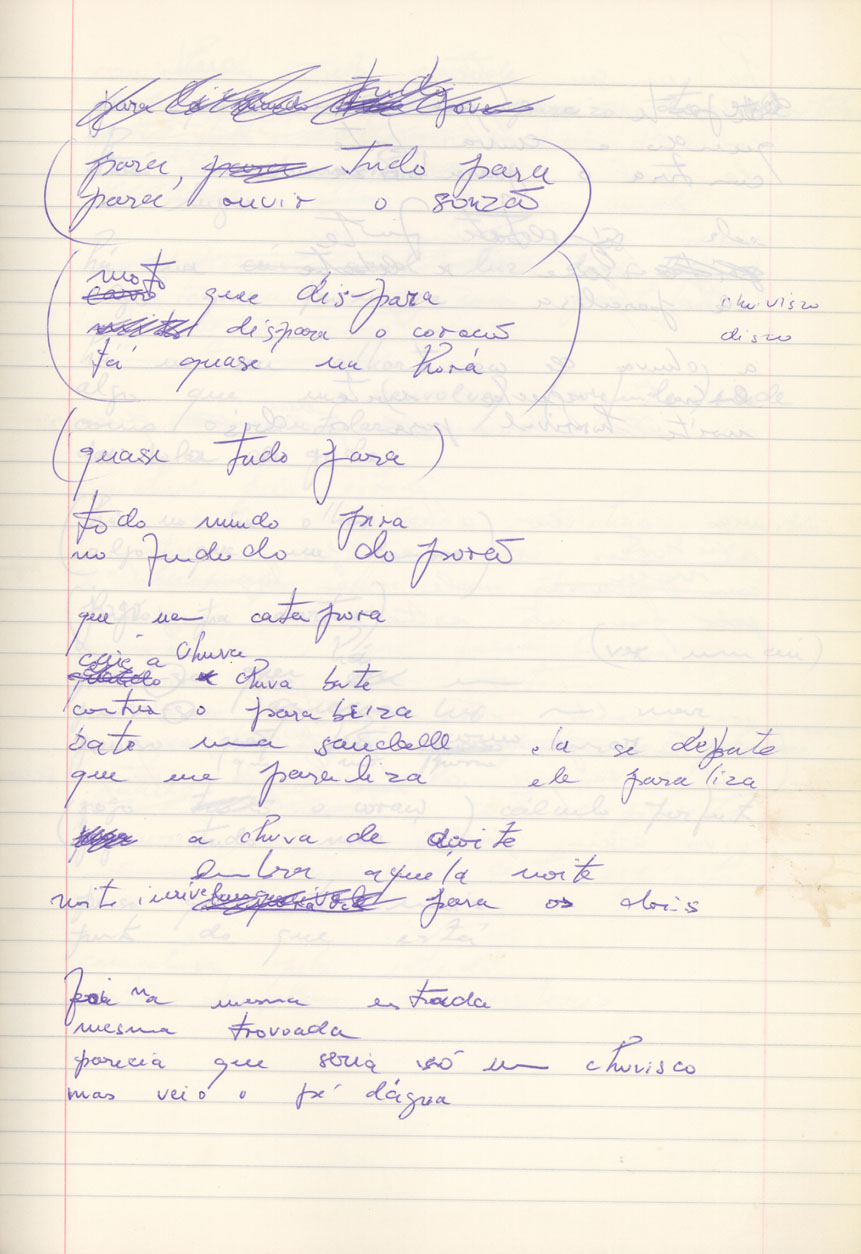 tudo
para, para tudo para
para ouvir o sonzão
moto
carro que dispara
dispara o coração
tá quase na hora
chuvisco
disco
(quase tudo para)
todo mundo pira
no fundo do porão
que nem catapora
cai a chuva
quando a chuva bate
contra o parabriza
bate uma saudade ela se debate
que me paraliza ele paraliza
a chuva de açoite
lembra aquela noite
noite incrível para os dois
foi na mesma estrada
mesma trovoada
parecia que seria só um chuvisco
mas veio o pé dágua